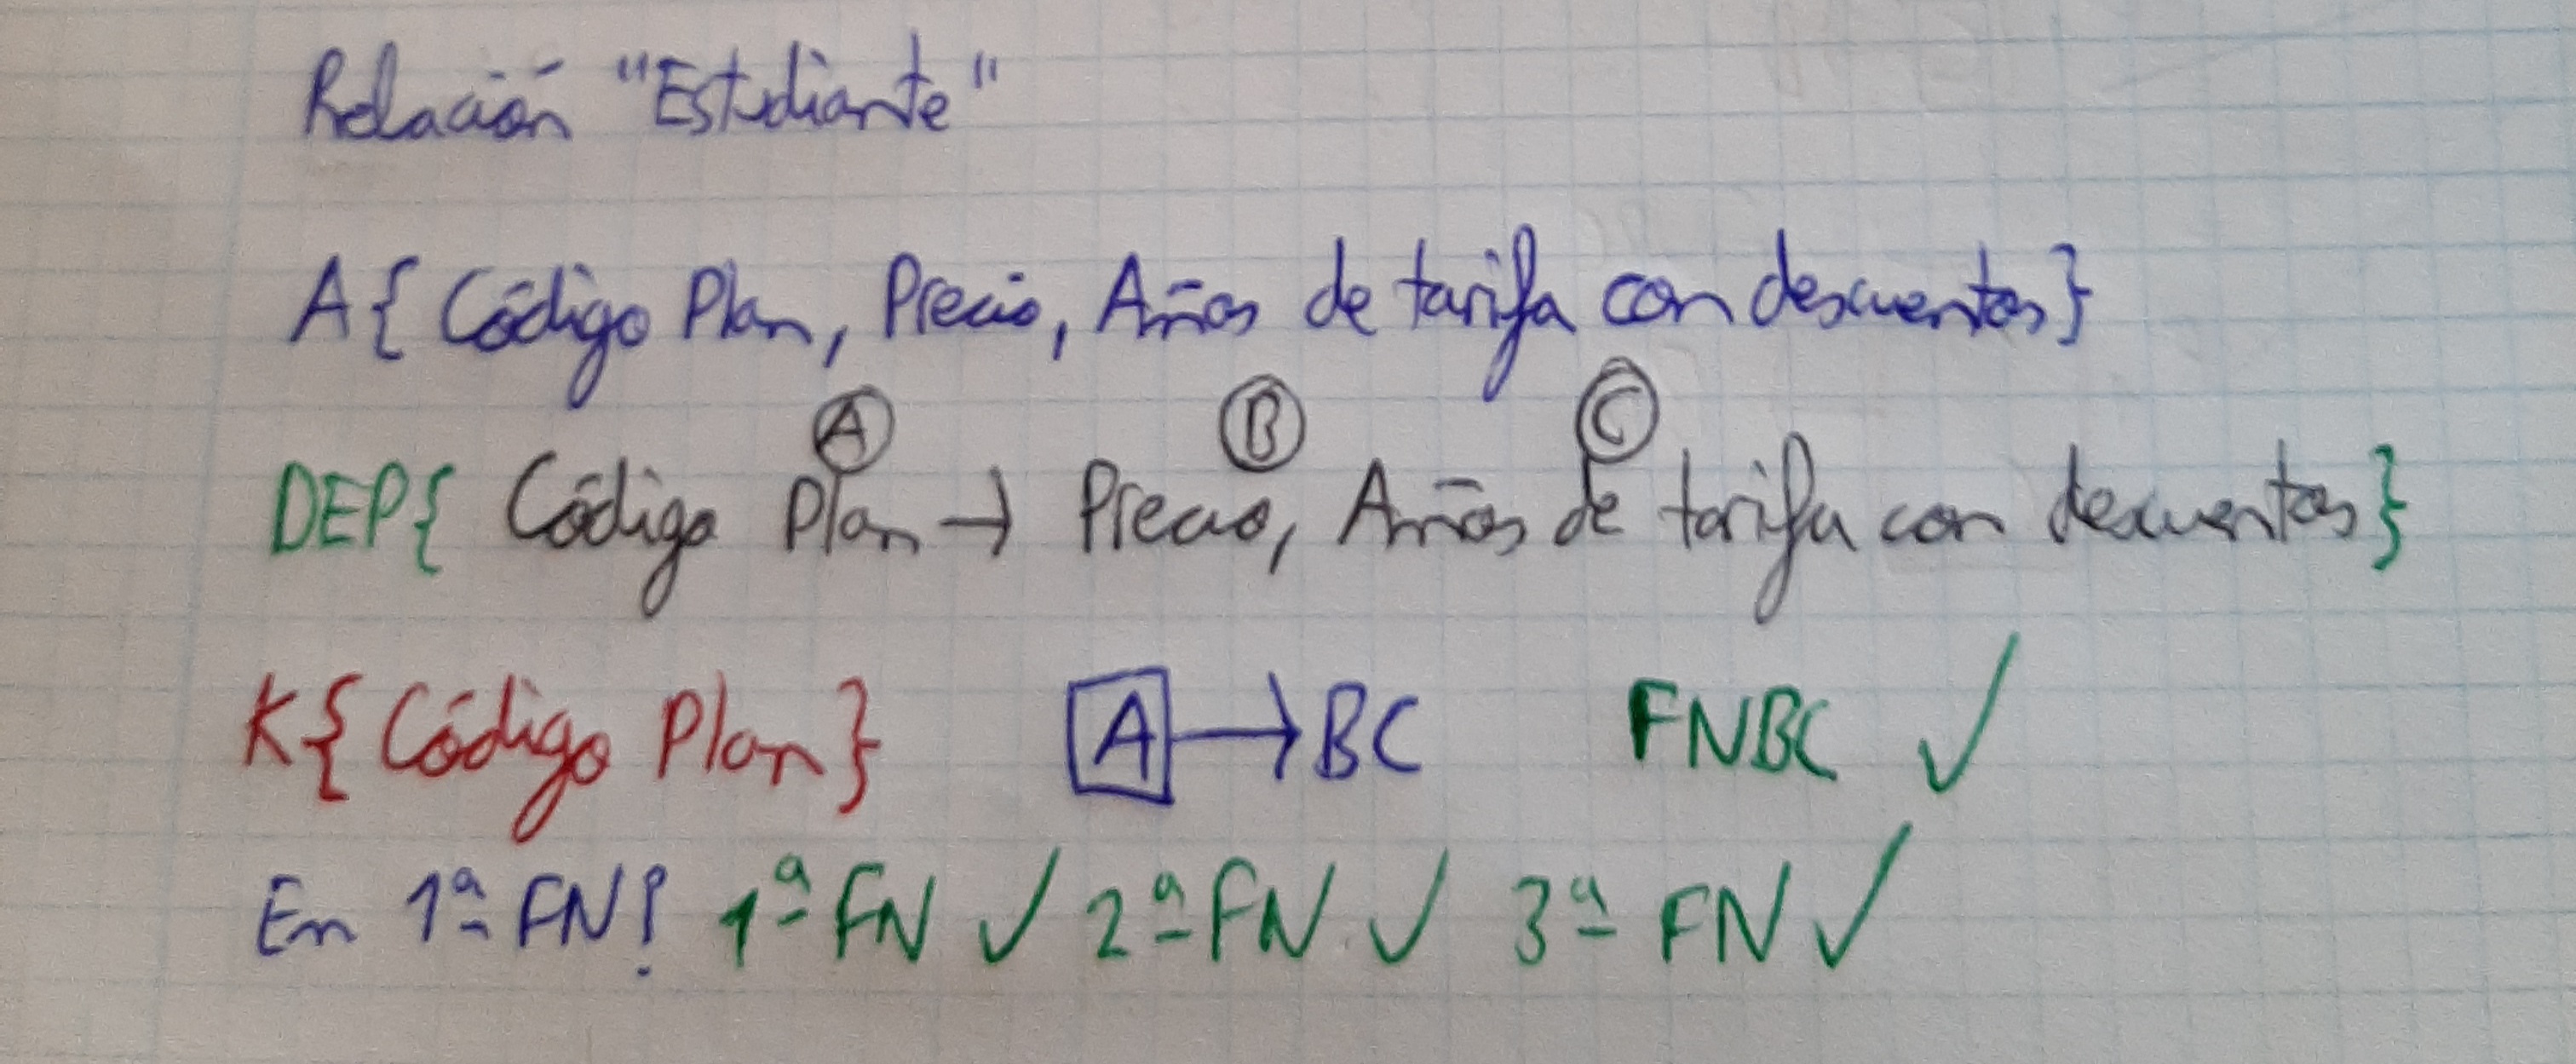 Relación "Estudiante"
A{ Código Plan, Precio, Años de tarifa con descuentos}
A B C
DEP{ Código Plan → Precio, Años de tarifa con descuentos}
K{Código Plan} A → BC FNBC ✓
En 1ª FN! 1ª FN ✓ 2ª FN ✓ 3ª FN ✓